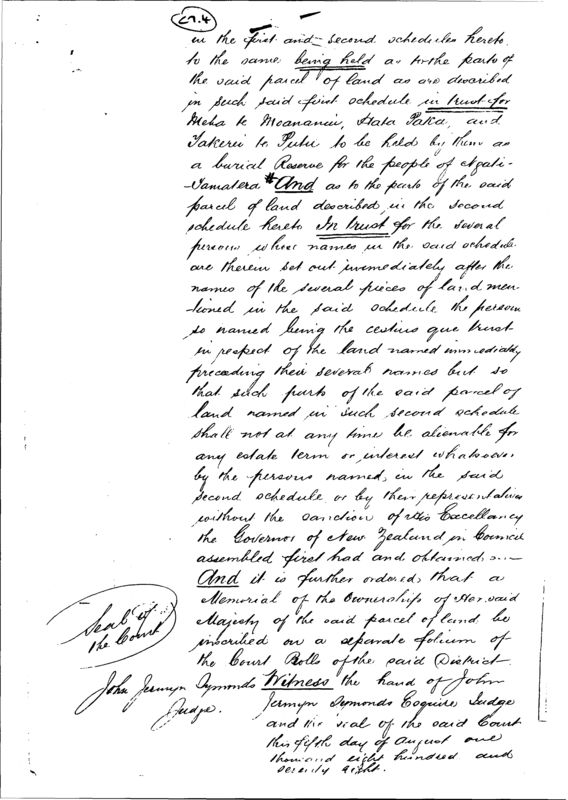 C7.4
in the first and second schedules hereto
to the same being held as to the parts of
the said parcel of land as are described
in such said first schedule in trust for
Meha te Moananui, Hata Paka, and
Takerei te Putu to be held by them as
a burial Reserve for the people of Ngati-
-Tamatera And as to the parts of the said
parcel of land described in the second
schedule hereto In trust for the several
persons whose names in the said schedule
are therein set out immediately after the
names of the several pieces of land men-
-tioned in the said schedule the persons
so named being the cestius que trust
in respect of the land named immediately
preceding their several names but so
that such parts of the said parcel of
land named in such second schedule
shall not at any time be alienable for
any estate term or interest whatsoever
by the persons named in the said
second schedule or by their representatives
without the sanction of His Excellency
the Governor of New Zealand in Council
assembled first had and obtained
And it is further ordered that a
Memorial of the Ownership of Her said
Majesty of the said parcel of land be
inscribed on a separate folium of
the Court Rolls of the said District
Witness the hand of John
Jermyn Symonds Esquire Judge
and the seal of the said Court
this fifth day of August one
thousand eight hundred and
seventy eight.
Seal of
the Court
John Jermyn Symonds
Judge.